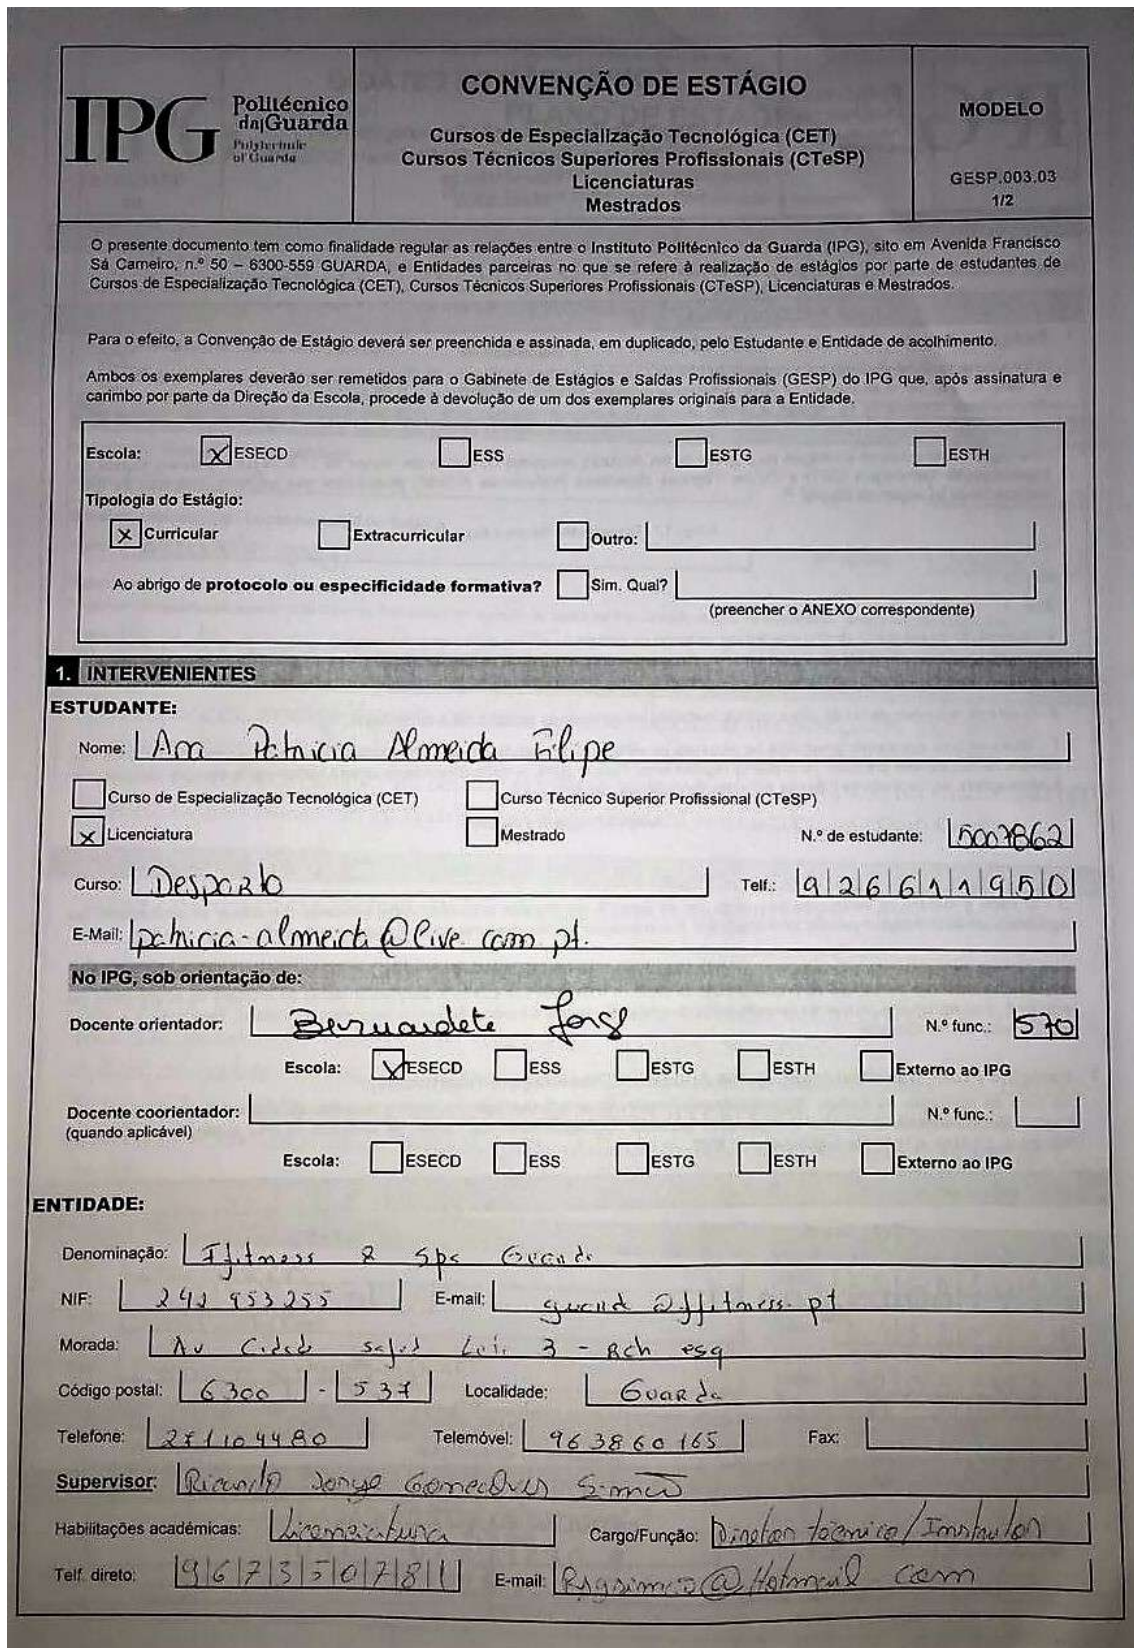 IPG Politécnico da Guarda Polytechnic of Guarda
CONVENÇÃO DE ESTÁGIO
Cursos de Especialização Tecnológica (CET)
Cursos Técnicos Superiores Profissionais (CTeSP)
Licenciaturas
Mestrados
MODELO
GESP.003.03
1/2
O presente documento tem como finalidade regular as relações entre o Instituto Politécnico da Guarda (IPG), sito em Avenida Francisco
Sá Carneiro, n.º 50 – 6300-559 GUARDA, e Entidades parceiras no que se refere à realização de estágios por parte de estudantes de
Cursos de Especialização Tecnológica (CET), Cursos Técnicos Superiores Profissionais (CTeSP), Licenciaturas e Mestrados.
Para o efeito, a Convenção de Estágio deverá ser preenchida e assinada, em duplicado, pelo Estudante e Entidade de acolhimento.
Ambos os exemplares deverão ser remetidos para o Gabinete de Estágios e Saídas Profissionais (GESP) do IPG que, após assinatura e
carimbo por parte da Direção da Escola, procede à devolução de um dos exemplares originais para a Entidade.
Escola: X ESECD ESS ESTG ESTH
Tipologia do Estágio:
X Curricular Extracurricular Outro:
Ao abrigo de protocolo ou especificidade formativa? Sim. Qual?
(preencher o ANEXO correspondente)
1. INTERVENIENTES
ESTUDANTE:
Nome: Ana Patricia Almeida Filipe
Curso de Especialização Tecnológica (CET) Curso Técnico Superior Profissional (CTeSP)
X Licenciatura Mestrado N.º de estudante: 5007862
Curso: Desporto Telf.: 926611950
E-Mail: patricia-almeida@live.com.pt.
No IPG, sob orientação de:
Docente orientador: Bernardete Jorge N.º func.: 570
Escola: X ESECD ESS ESTG ESTH Externo ao IPG
Docente coorientador: N.º func.:
(quando aplicável)
Escola: ESECD ESS ESTG ESTH Externo ao IPG
ENTIDADE:
Denominação: & Guarda
NIF: E-mail:
Morada: Av 3 - Rch esq
Código postal: 6300 - 537 Localidade: Guarda
Telefone: 271104480 Telemóvel: 963860165 Fax:
Supervisor: Ricardo Jorge Gonçalves Simão
Habilitações académicas: Licenciatura Cargo/Função: Diretor técnico/Instrutor
Telf. direto: E-mail: